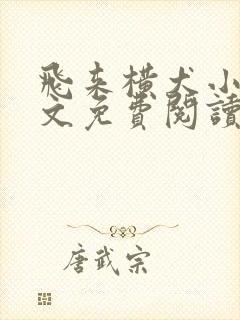 飛来橫犬小
文免費閱讀
唐武宗